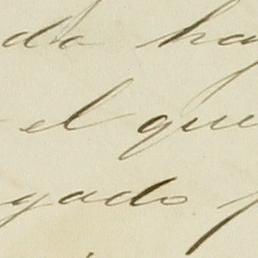 da ha
el que
gado